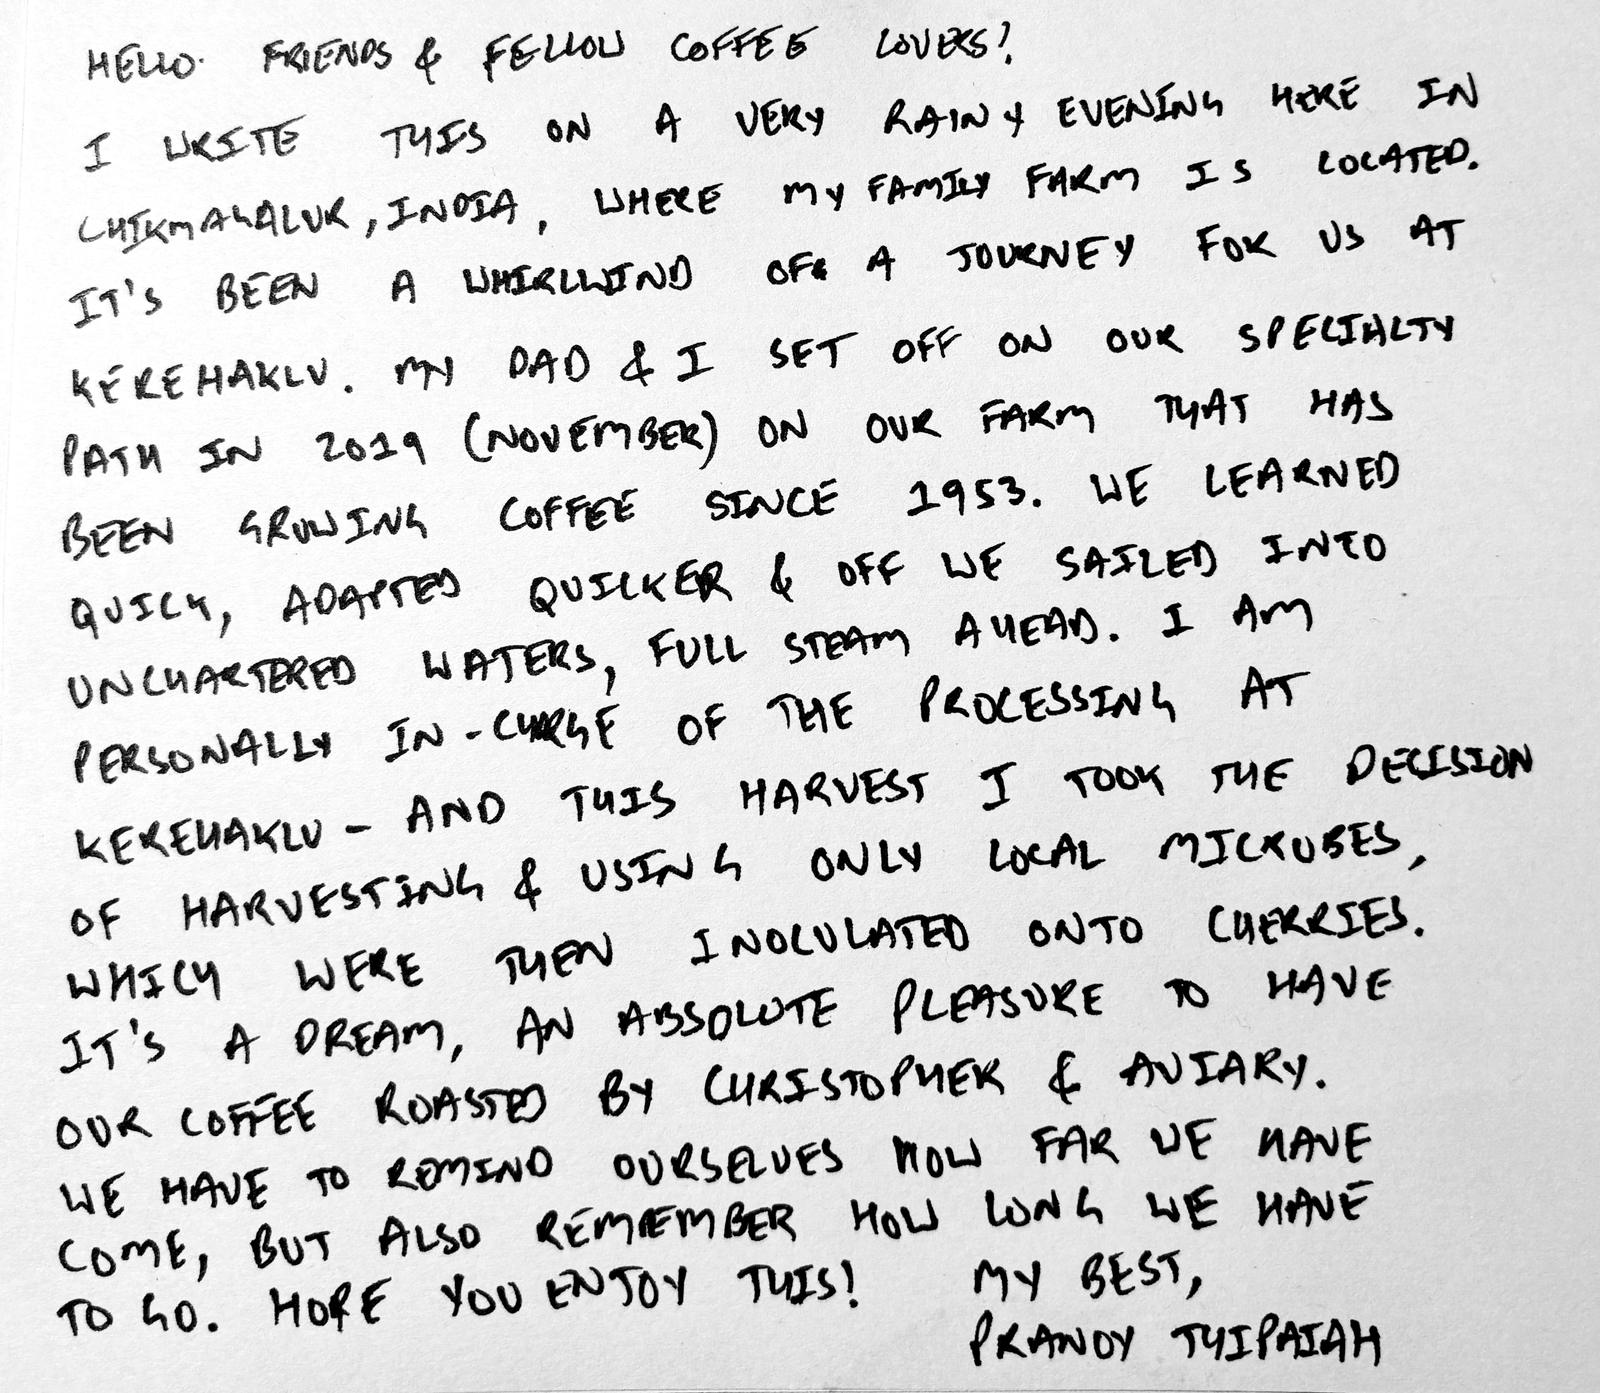 HELLO FRIENDS & FELLOW COFFEE LOVERS!
I WRITE THIS ON A VERY RAINY EVENING HERE IN
CHIKMAGALUR, INDIA, WHERE MY FAMILY FARM IS LOCATED.
IT'S BEEN A WHIRLWIND OF A JOURNEY FOR US AT
KEREHAKLU. MY DAD & I SET OFF ON OUR SPECIALTY
PATH IN 2019 (NOVEMBER) ON OUR FARM THAT HAS
BEEN GROWING COFFEE SINCE 1953. WE LEARNED
QUICK, ADAPTED QUICKER & OFF WE SAILED INTO
UNCHARTERED WATERS, FULL STEAM AHEAD. I AM
PERSONALLY IN-CHARGE OF THE PROCESSING AT
KEREHAKLU - AND THIS HARVEST I TOOK THE DECISION
OF HARVESTING & USING ONLY LOCAL MICROBES,
WHICH WERE THEN INOCULATED ONTO CHERRIES.
IT'S A DREAM, AN ABSOLUTE PLEASURE TO HAVE
OUR COFFEE ROASTED BY CHRISTOPHER & AVIARY.
WE HAVE TO REMIND OURSELVES HOW FAR WE HAVE
COME, BUT ALSO REMEMBER HOW LONG WE HAVE
TO GO. HOPE YOU ENJOY THIS! MY BEST,
PRANOY THIPAIAH